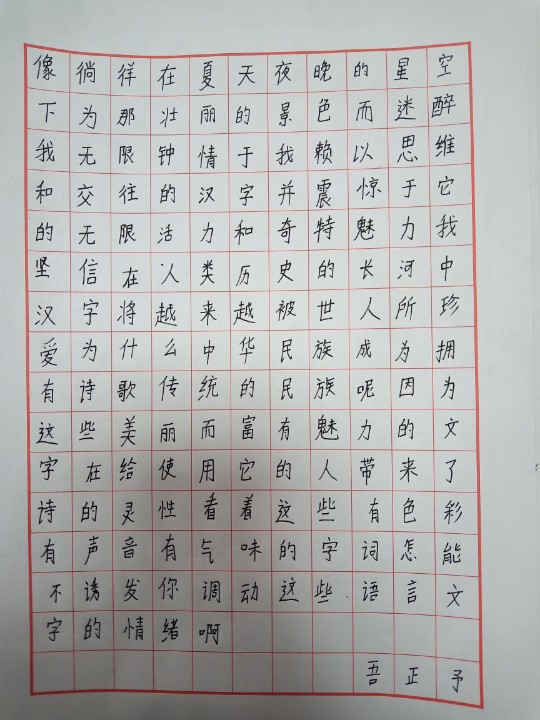 像徜徉在夏天夜晚的星空
下为那壮丽的景色而迷醉
我无限钟情于我赖以思维
和交往的汉字并震惊于它
的无限活力和奇特魅力我
坚信在人类历史的长河中
汉字将越来越被世人所珍
爱为什么中华民族成为拥
有诗歌传统的民族呢因为
这些美丽而富有魅力的文
字在给使用它的人带来了
诗的灵性看着这些有色彩
有声音有气味的字词怎能
不诱发你调动这些语言文
字的情绪啊
吾正予